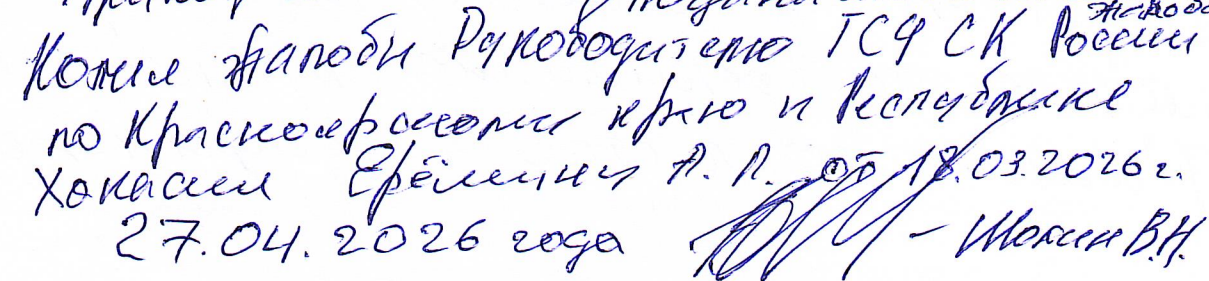 Жалоба
Копия жалобы Руководителю ГСУ СК России
по Красноярскому краю и Республике
Хакасия Ерёмину А. Л. от 18.03.2026 г.
27.04.2026 года – Шокин В.Н.